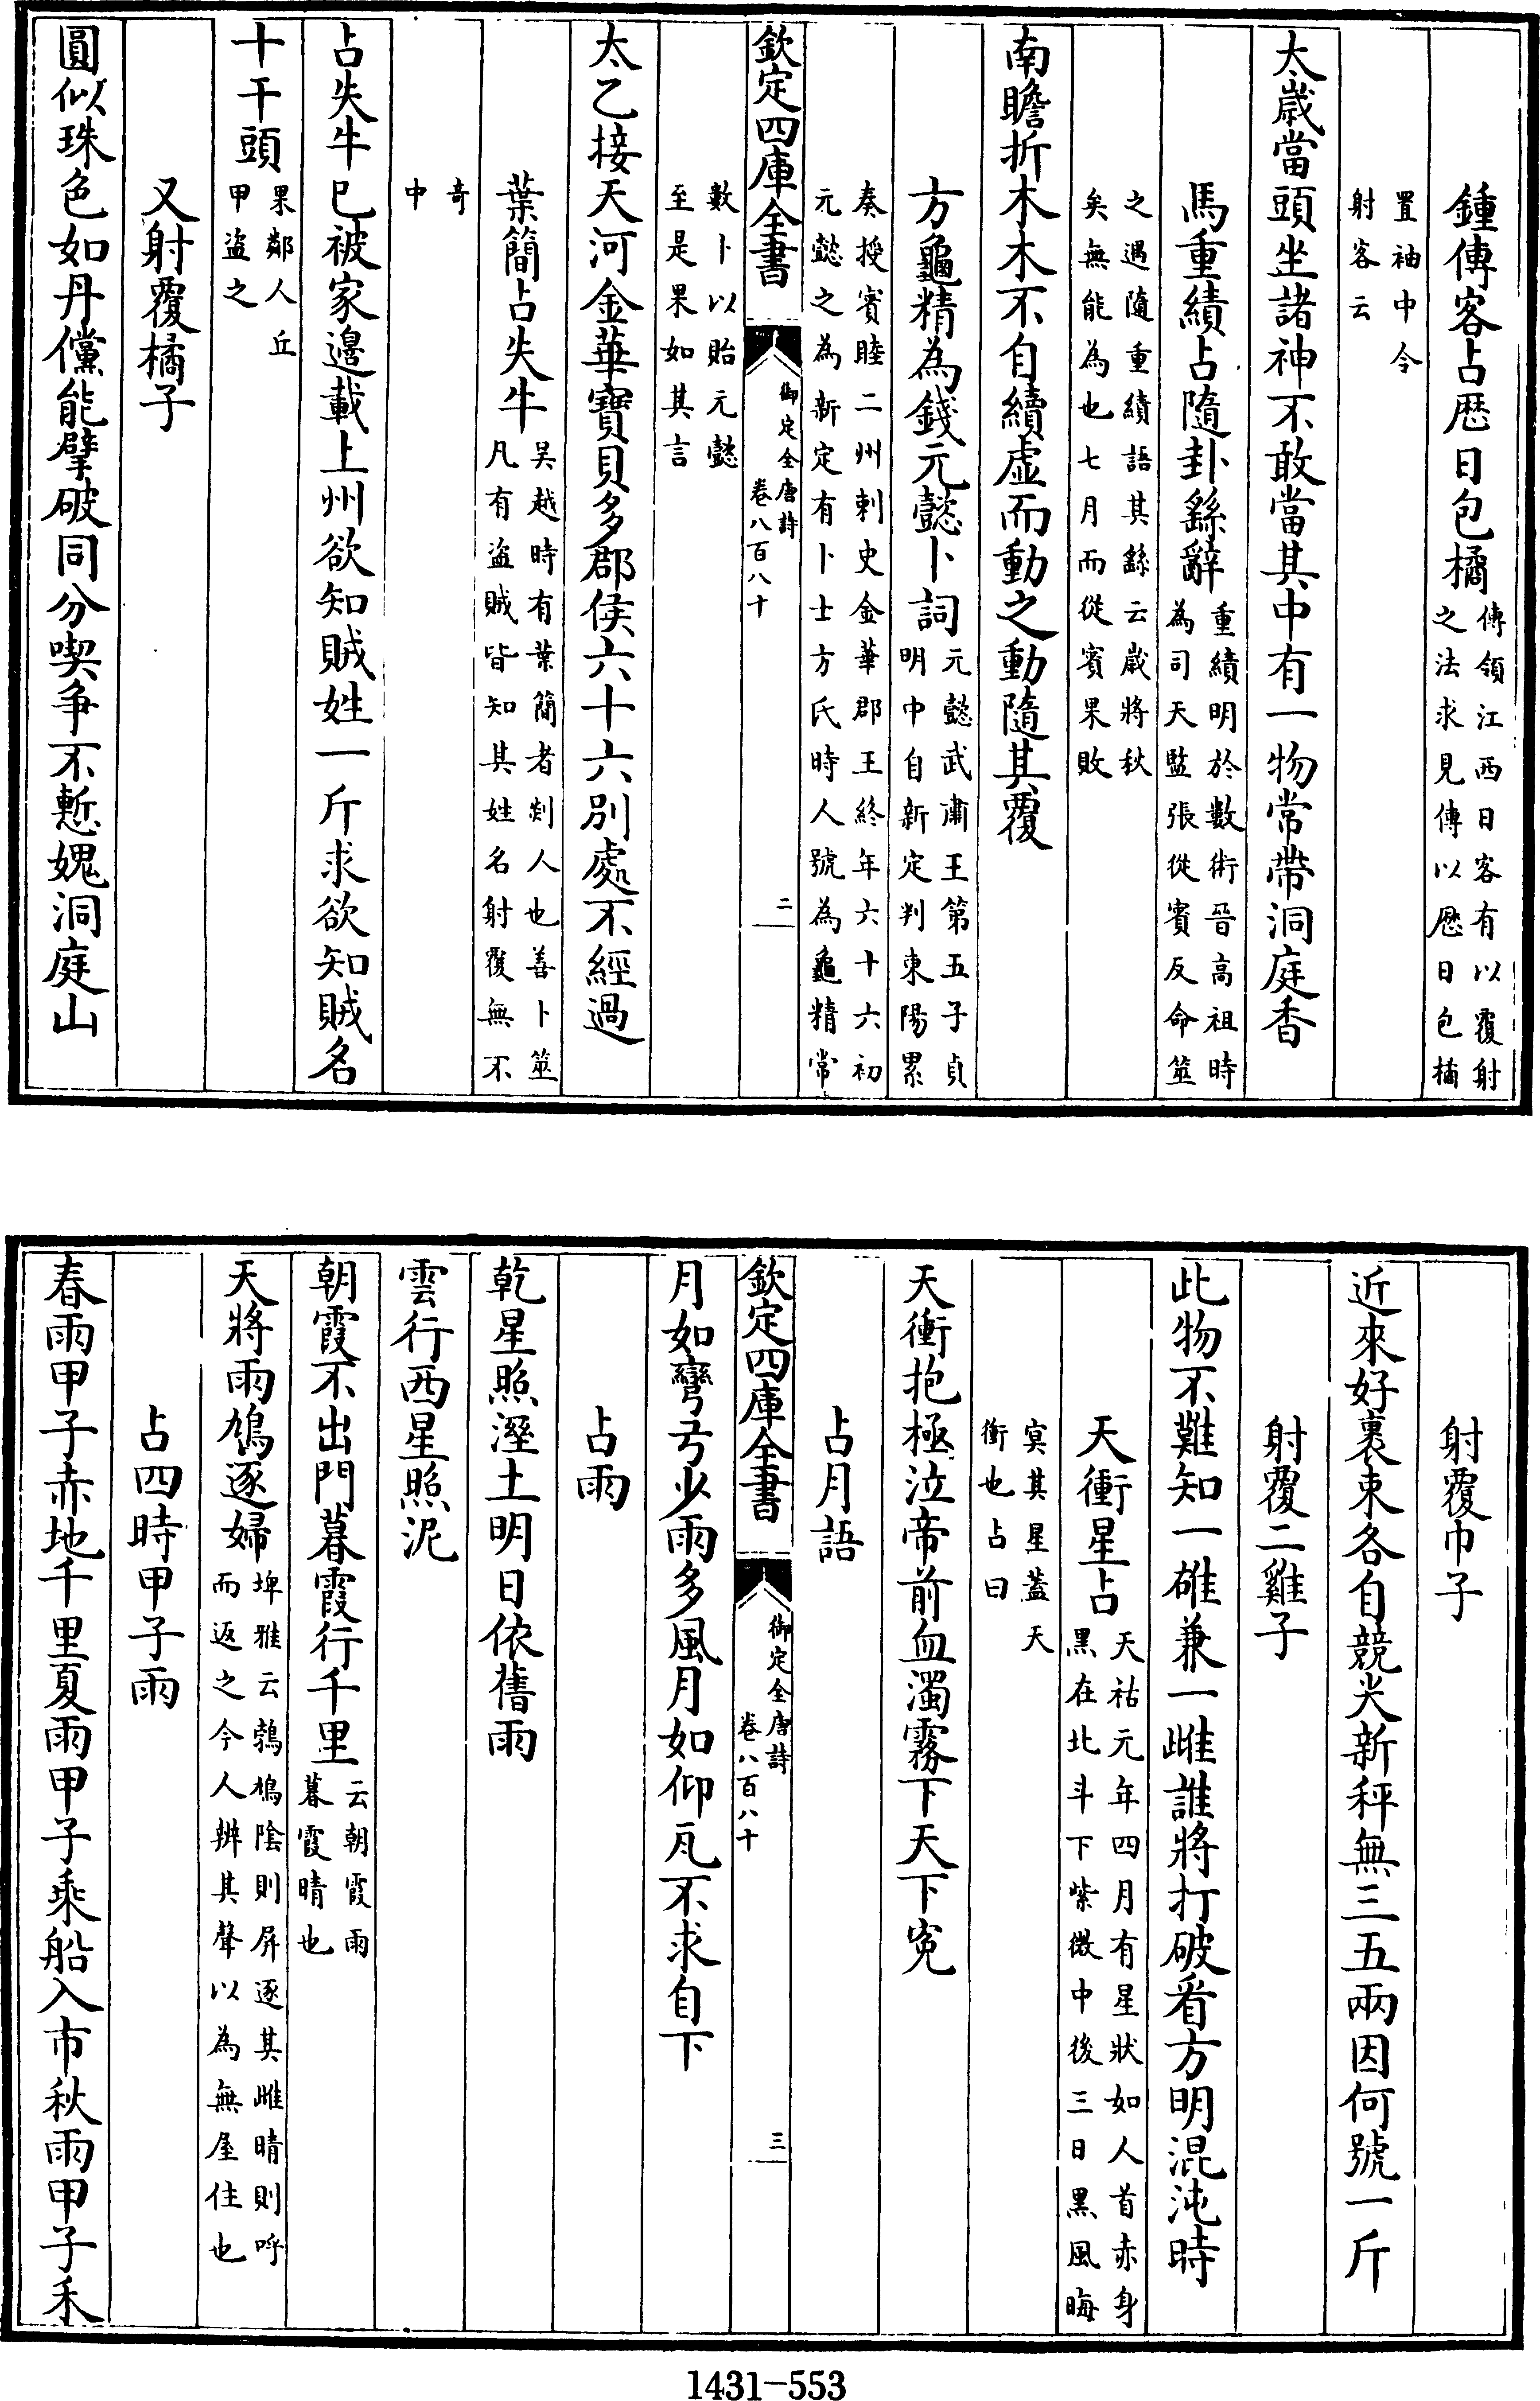 鍾傳客占歴日包橘傳領江西日客有以覆射之法求見傳以厯日包橘
置袖中令射客云
太歲當頭坐諸神不敢當其中有一物常帶洞庭香
馬重績占隨卦繇辭重績明於數術晉高祖時為司天監張從賓反命筮
之遇隨重績語其繇云歲將秋矣無能為也七月而從賓果敗
南瞻折木木不自續虚而動之動隨其覆
方龜精為錢元懿卜詞元懿武肅王第五子貞明中自新定判東陽累
奏授賓睦二州刺史金華郡王終年六十六初元懿之為新定有卜士方氏時人號為龜精常
欽定四庫全書 御定全唐詩卷八百八十 二
數卜以貽元懿至是果如其言
太乙接天河金華寶貝多郡侯六十六別處不經過
葉簡占失牛吳越時有葉簡者剡人也善卜筮凡有盗賊皆知其姓名射覆無不
奇中
占失牛已被家邊載上州欲知賊姓一斤求欲知賊名
十干頭果鄰人丘甲盗之
又射覆橘子
圓似珠色如丹儻能擘破同分喫爭不慙媿洞庭山
射覆巾子
近來好裹束各自競尖新秤無三五兩因何號一斤
射覆二雞子
此物不難知一雄兼一雌誰將打破看方明混沌時
天衝星占天祐元年四月有星狀如人首赤身黑在北斗下紫微中後三日黑風晦
㝠其星蓋天衝也占曰
天衝抱極泣帝前血濁霧下天下寃
占月語
欽定四庫全書 御定全唐詩卷八百八十 三
月如彎弓少雨多風月如仰瓦不求自下
占雨
乾星照溼土明日依舊雨
雲行西星照泥
朝霞不出門暮霞行千里云朝霞雨暮霞晴也
天將雨鳩逐婦埤雅云鶉鳩陰則屏逐其雌晴則呼而返之今人辨其聲以為無屋住也
占四時甲子雨
春雨甲子赤地千里夏雨甲子乘船入市秋雨甲子禾
1431-553